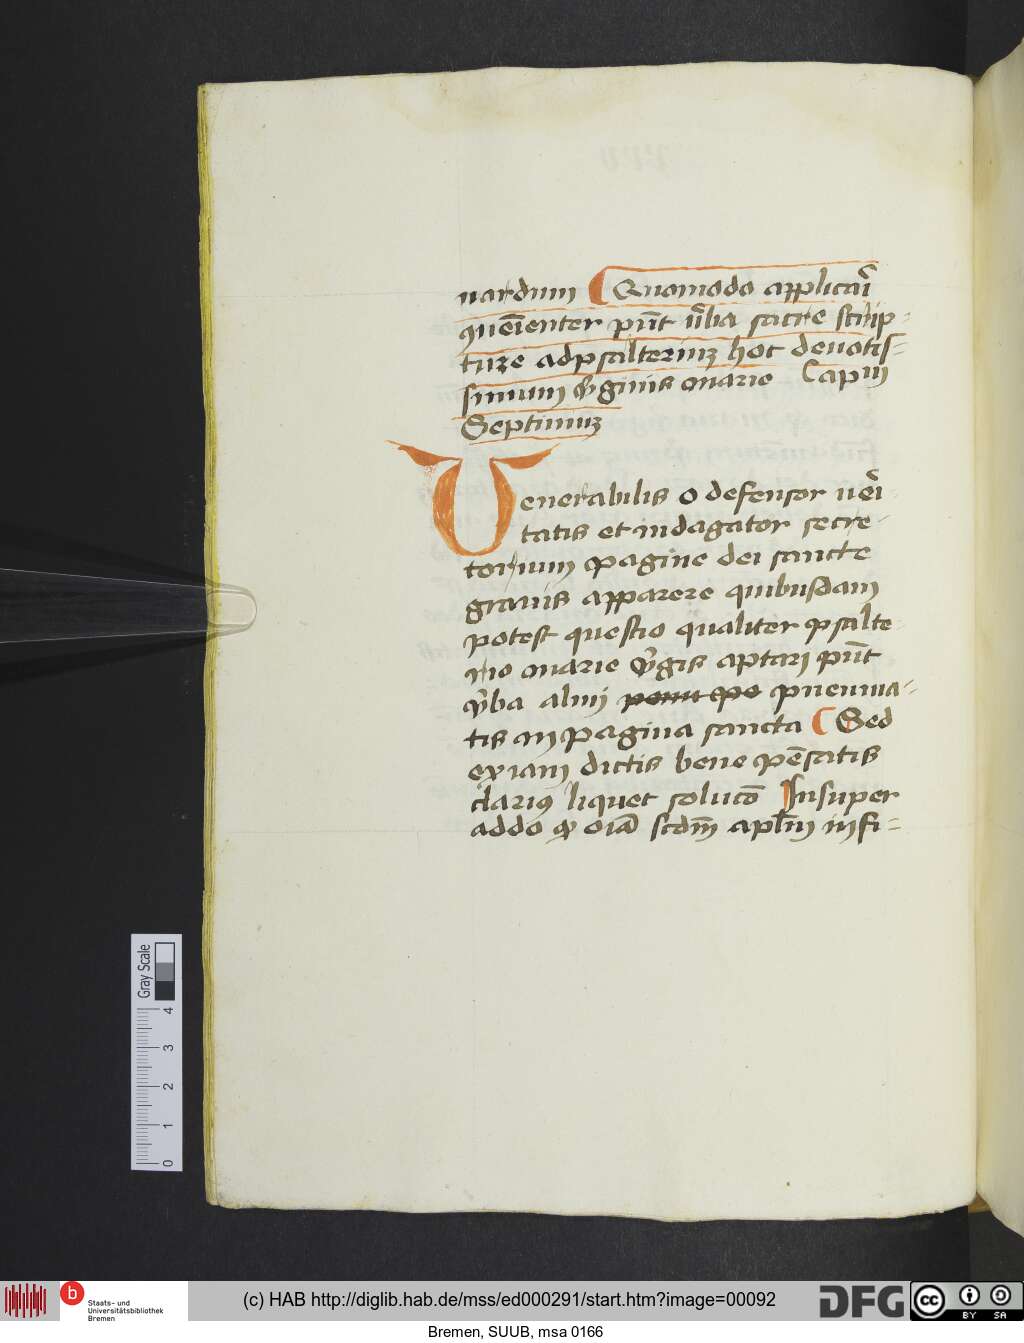 nardum Quomodo applicari
queūienter pn̄t v̄ba sacre scrip-
ture ad psalteriuʒ hoc deuotis-
simum v̄ginis marie Capm
Septimuʒ
Venerabilis o defensor ueri
tatis et indagator secre-
torum pagine dei sancte
grauis apparere quibusdam
potest questio qualiter psalte-
rio marie v̄gis aptari pn̄t
v̄ba almi pneuma-
tis in pagina sancta Sed
ex iam dictis bene pēsatis
clarius liquet solucō Insuper
addo oīa scdm̄ aplm̄ in fi-
Gray Scale
0 1 2 3 4
b
Staats- und
Universitätsbibliothek
Bremen
(c) HAB http://diglib.hab.de/mss/ed000291/start.htm?image=00092
DFG
cc BY SA
Bremen, SUUB, msa 0166